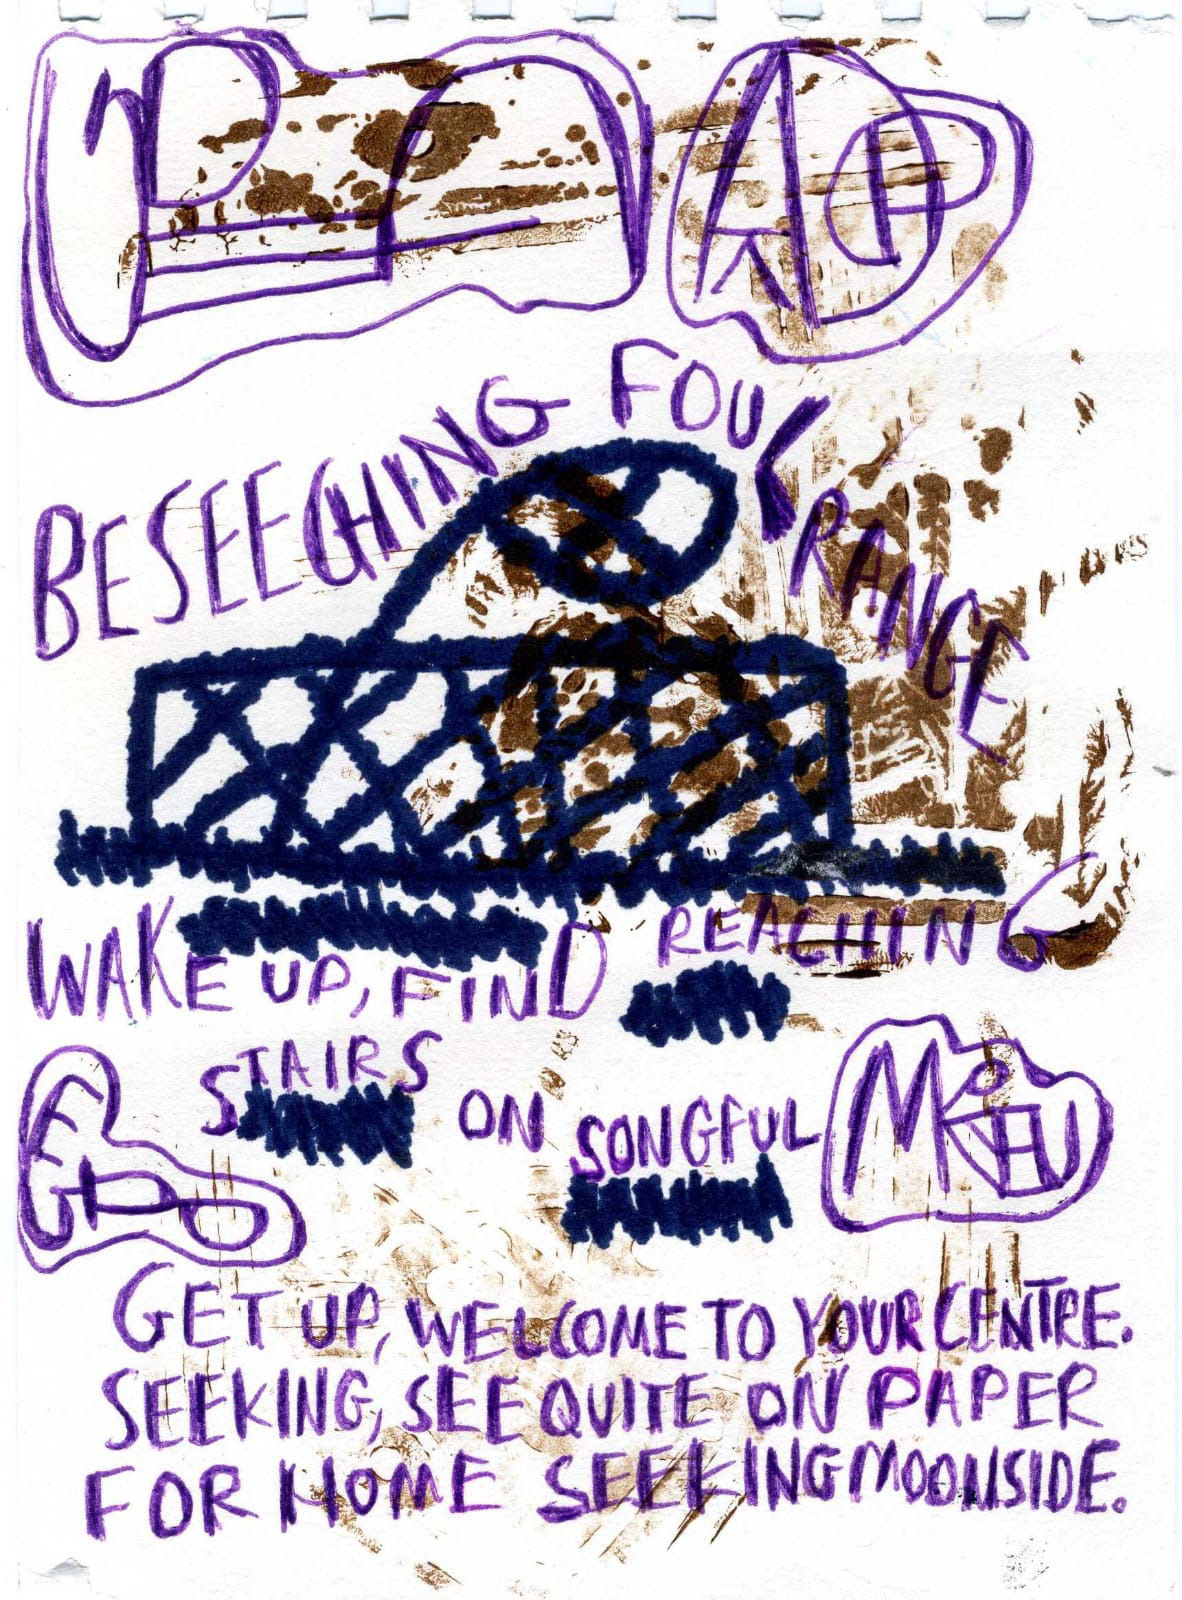 BESEECHING FOUR RANGE
WAKE UP, FIND REACHING
STAIRS ON SONGFUL
GET UP, WELCOME TO YOUR CENTRE.
SEEKING, SEE QUITE ON PAPER
FOR HOME SEEKING MOONSIDE.